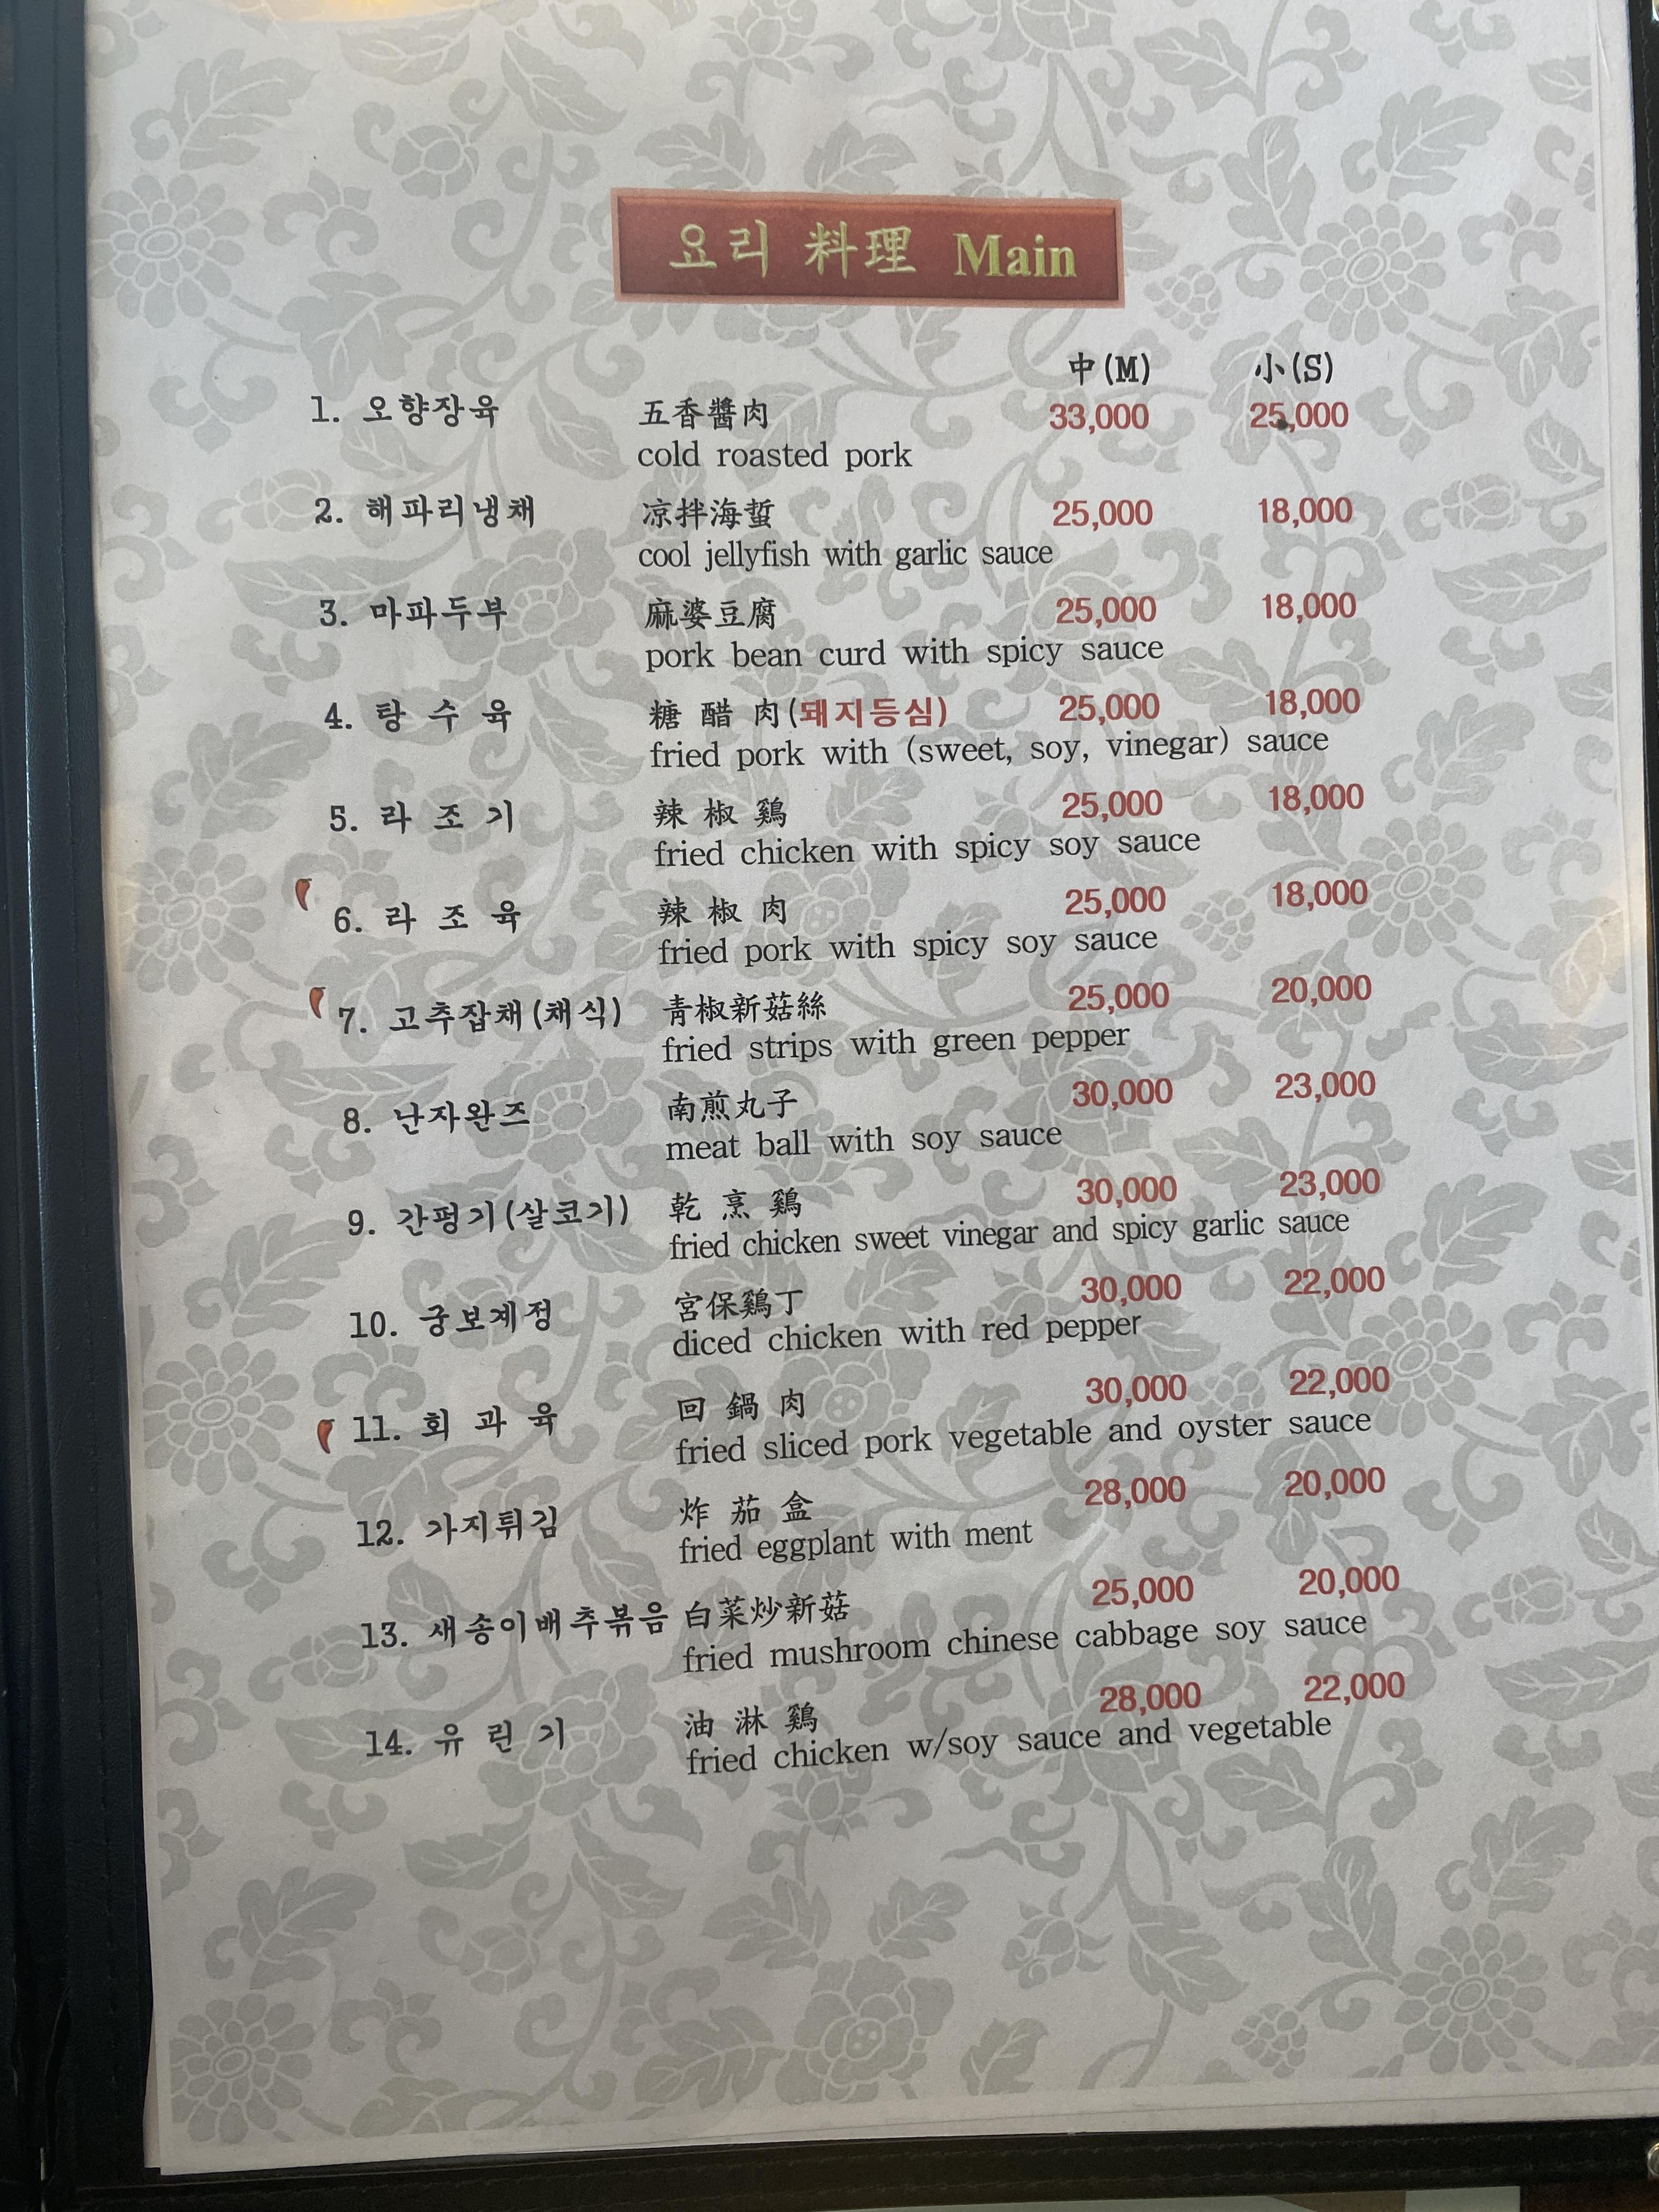 요리 料理 Main
中(M) 小(S)
1. 오향장육 五香醬肉 33,000 25,000
cold roasted pork
2. 해파리냉채 凉拌海蜇 25,000 18,000
cool jellyfish with garlic sauce
3. 마파두부 麻婆豆腐 25,000 18,000
pork bean curd with spicy sauce
4. 탕 수 육 糖 醋 肉(돼지등심) 25,000 18,000
fried pork with (sweet, soy, vinegar) sauce
5. 라 조 기 辣 椒 鷄 25,000 18,000
fried chicken with spicy soy sauce
6. 라 조 육 辣 椒 肉 25,000 18,000
fried pork with spicy soy sauce
7. 고추잡채(채식) 靑椒新菇絲 25,000 20,000
fried strips with green pepper
8. 난자완즈 南煎丸子 30,000 23,000
meat ball with soy sauce
9. 간펑기(살코기) 乾 烹 鷄 30,000 23,000
fried chicken sweet vinegar and spicy garlic sauce
10. 궁보계정 宮保鷄丁 30,000 22,000
diced chicken with red pepper
11. 회 과 육 回 鍋 肉 30,000 22,000
fried sliced pork vegetable and oyster sauce
12. 가지튀김 炸 茄 盒 28,000 20,000
fried eggplant with ment
13. 새송이배추볶음 白菜炒新菇 25,000 20,000
fried mushroom chinese cabbage soy sauce
14. 유 린 기 油 淋 鷄 28,000 22,000
fried chicken w/soy sauce and vegetable